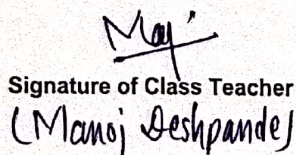 Signature of Class Teacher
(Manoj Deshpande)